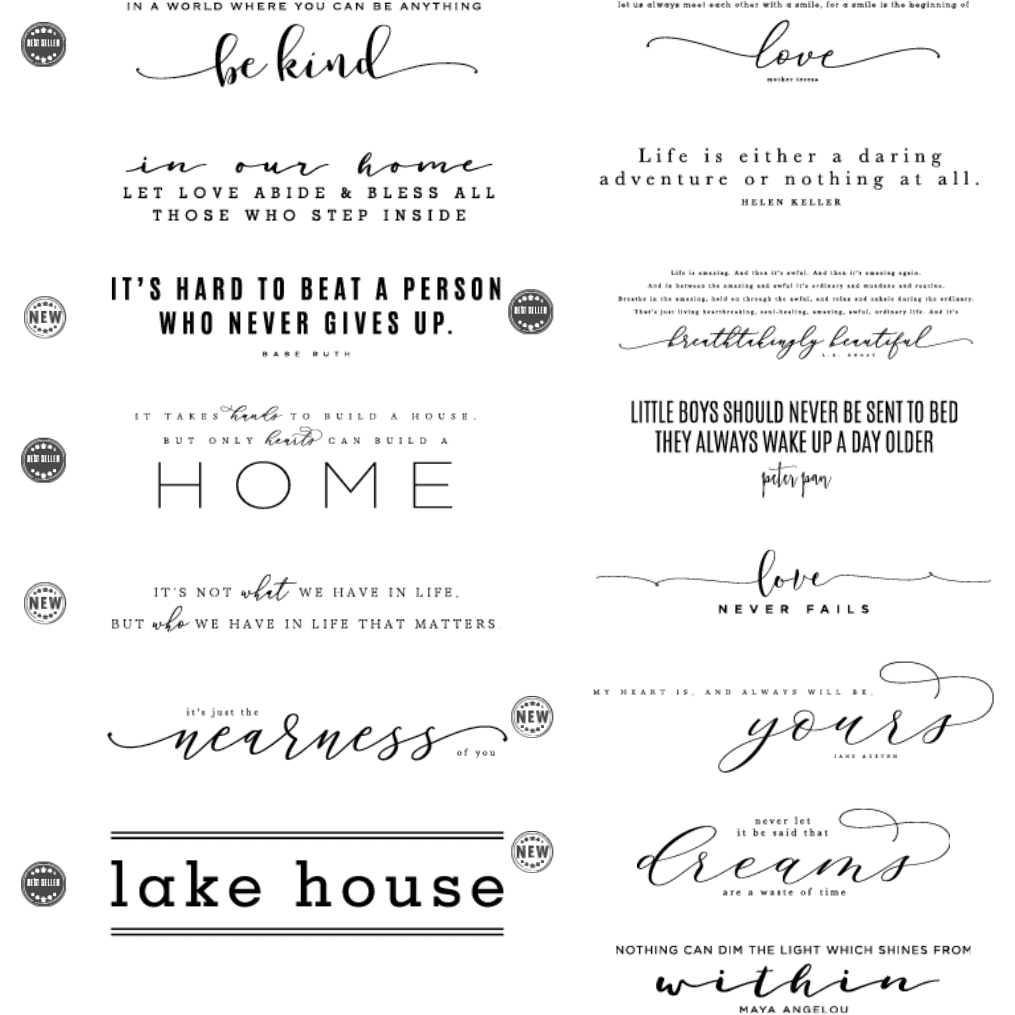 IN A WORLD WHERE YOU CAN BE ANYTHING
BEST SELLER
be kind
in our home
LET LOVE ABIDE & BLESS ALL
THOSE WHO STEP INSIDE
NEW
IT'S HARD TO BEAT A PERSON
WHO NEVER GIVES UP.
BABE RUTH
BEST SELLER
IT TAKES hands TO BUILD A HOUSE,
BUT ONLY hearts CAN BUILD A
HOME
NEW
IT'S NOT what WE HAVE IN LIFE,
BUT who WE HAVE IN LIFE THAT MATTERS.
it's just the
nearness
of you
BEST SELLER
lake house
let us always meet each other with a smile, for a smile is the beginning of
love
mother teresa
Life is either a daring
adventure or nothing at all.
HELEN KELLER
BEST SELLER
Life is amazing. And then it's awful. And then it's amazing again.
And in between the amazing and awful it's ordinary and mundane and routine.
Breathe in the amazing, hold on through the awful, and relax and exhale during the ordinary.
That's just living heartbreaking, soul-healing, amazing, awful, ordinary life. And it's
breathtakingly beautiful
L.R. KNOST
LITTLE BOYS SHOULD NEVER BE SENT TO BED
THEY ALWAYS WAKE UP A DAY OLDER
peter pan
love
NEVER FAILS
NEW
MY HEART IS, AND ALWAYS WILL BE,
yours
JANE AUSTEN
NEW
never let
it be said that
dreams
are a waste of time
NOTHING CAN DIM THE LIGHT WHICH SHINES FROM
within
MAYA ANGELOU